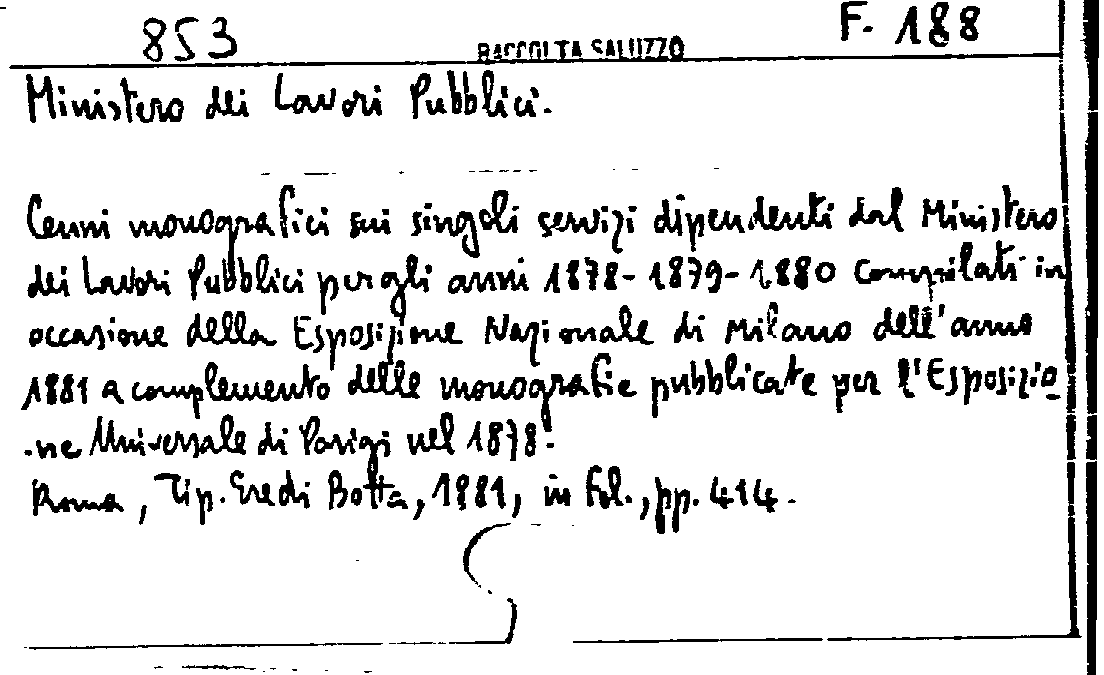 853 RACCOLTA SALUZZO F. 188
Ministero dei Lavori Pubblici.
Cenni monografici sui singoli servizi dipendenti dal Ministero
dei Lavori Pubblici per gli anni 1878-1879-1880 compilati in
occasione della Esposizione Nazionale di Milano dell'anno
1881 a complemento delle monografie pubblicate per l'Esposizio-
-ne Universale di Parigi nel 1878.
Roma, Tip. Eredi Botta, 1881, in fol., pp. 414.